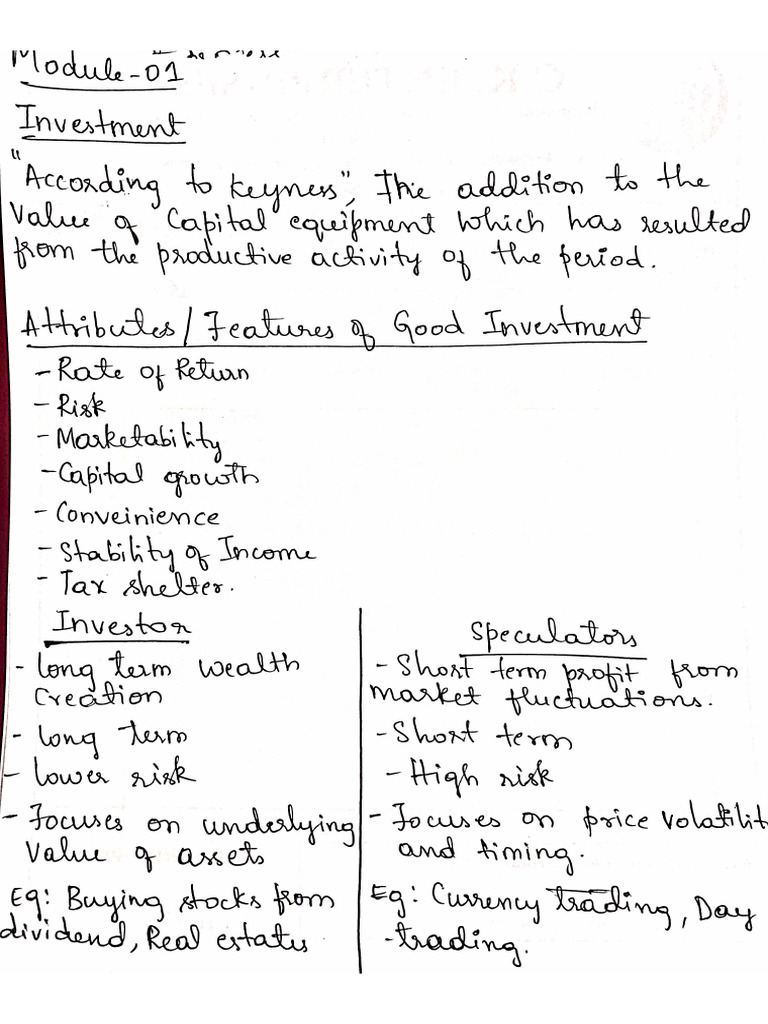 Module-01
Investment
"According to keyness", The addition to the
Value of Capital equipment which has resulted
from the productive activity of the period.
Attributes/Features of Good Investment
- Rate of Return
- Risk
- Marketability
- Capital growth
- Conveinience
- Stability of Income
- Tax shelter.
Investor
- long term wealth
Creation
- long term
- lower risk
- Focuses on underlying
Value of assets
Eg: Buying stocks from
dividend, Real estates
Speculators
- Short term profit from
market fluctuations.
- Short term
- High risk
- Focuses on price volatilit
and timing.
Eg: Currency trading, Day
-trading.